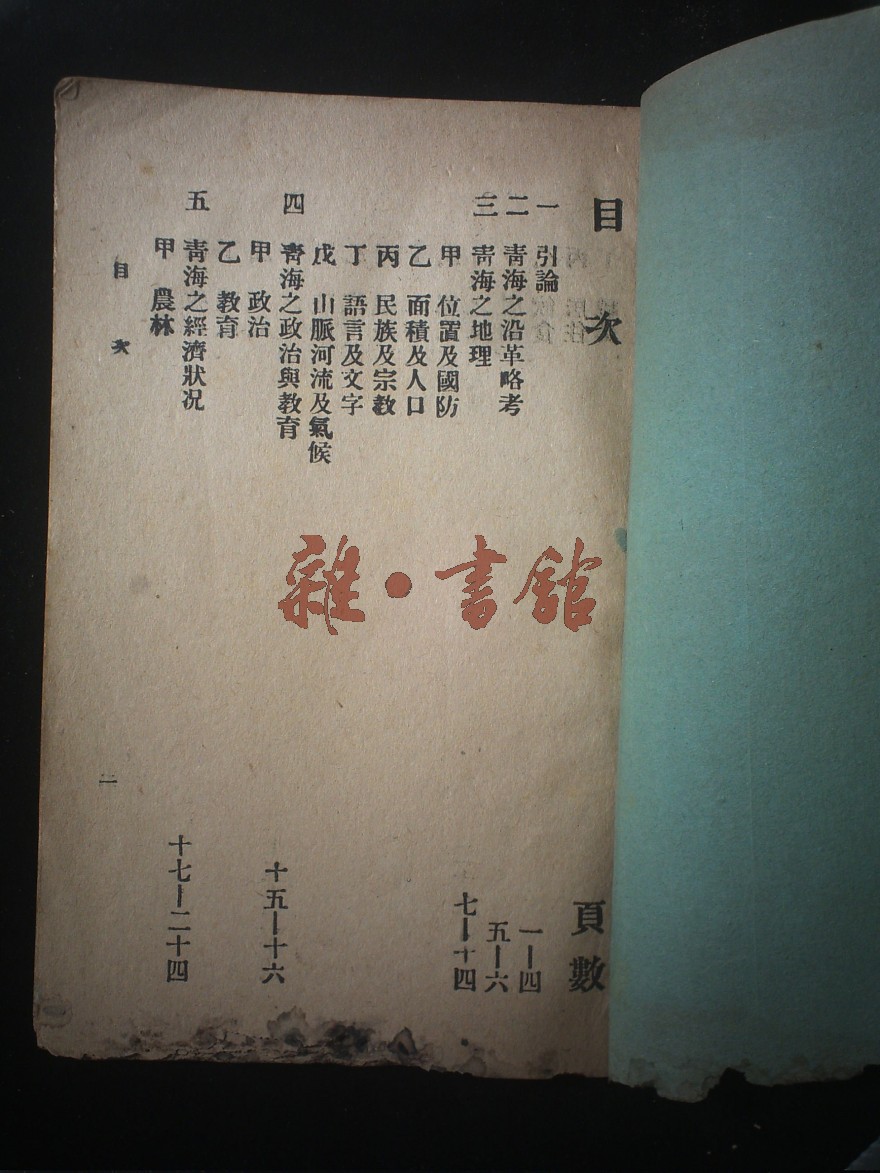 目次 頁數
一 引論 一—四
二 青海之沿革略考 五—六
三 青海之地理 七—十四
甲 位置及國防
乙 面積及人口
丙 民族及宗教
丁 語言及文字
戊 山脈河流及氣候
四 青海之政治與教育 十五—十六
甲 政治
乙 教育
五 青海之經濟狀况 十七—二十四
甲 農林
目次 一
雜·書館